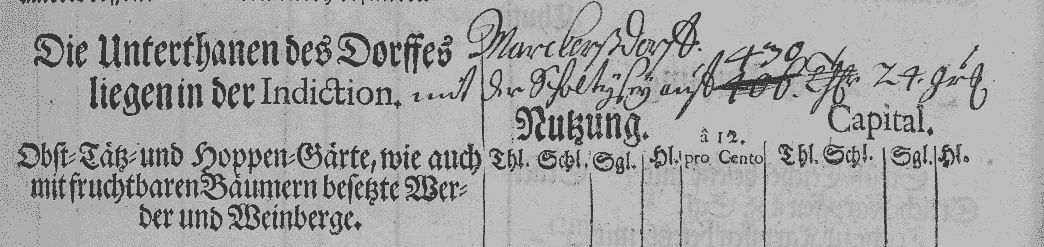 Die Unterthanen des Dorffes Marckerßdorff.
liegen in der Indiction. mit der Scholtysey auf 430 Thlr. 24. grl
Nutzung. Capital.
Obst-Tätz-und Hoppen-Gärte, wie auch Thl. Schl. Sgl. Hl. â 12. pro Cento Thl. Schl. Sgl. Hl.
mit fruchtbaren Bäumern besetzte Wer-
der und Weinberge.